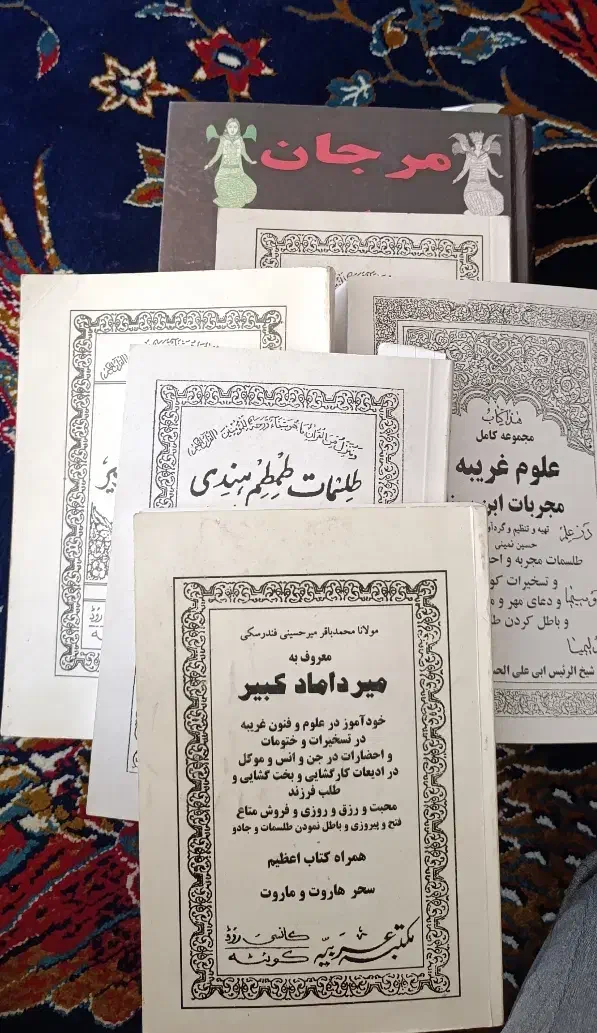 مرجان
هذا کتاب
مجموعه کامل
علوم غریبه
مجربات ابن
تهیه و تنظیم و گردآو
حسین نمینی
طلسمات مجربه و اح
و تسخیرات کو
و دعای مهر و م
و باطل کردن ط
شیخ الرئیس ابی علی الح
طلسمات طمطم هندی
مولانا محمدباقر میرحسینی فندرسکی
معروف به
میرداماد کبیر
خودآموز در علوم و فنون غریبه
در تسخیرات و ختومات
و احضارات در جن و انس و موکل
در ادعیات کارگشایی و بخت گشایی و
طلب فرزند
محبت و رزق و روزی و فروش متاع
فتح و پیروزی و باطل نمودن طلسمات و جادو
همراه کتاب اعظیم
سحر هاروت و ماروت
مکتبه عربیه
کانسی روڈ
کوئٹه